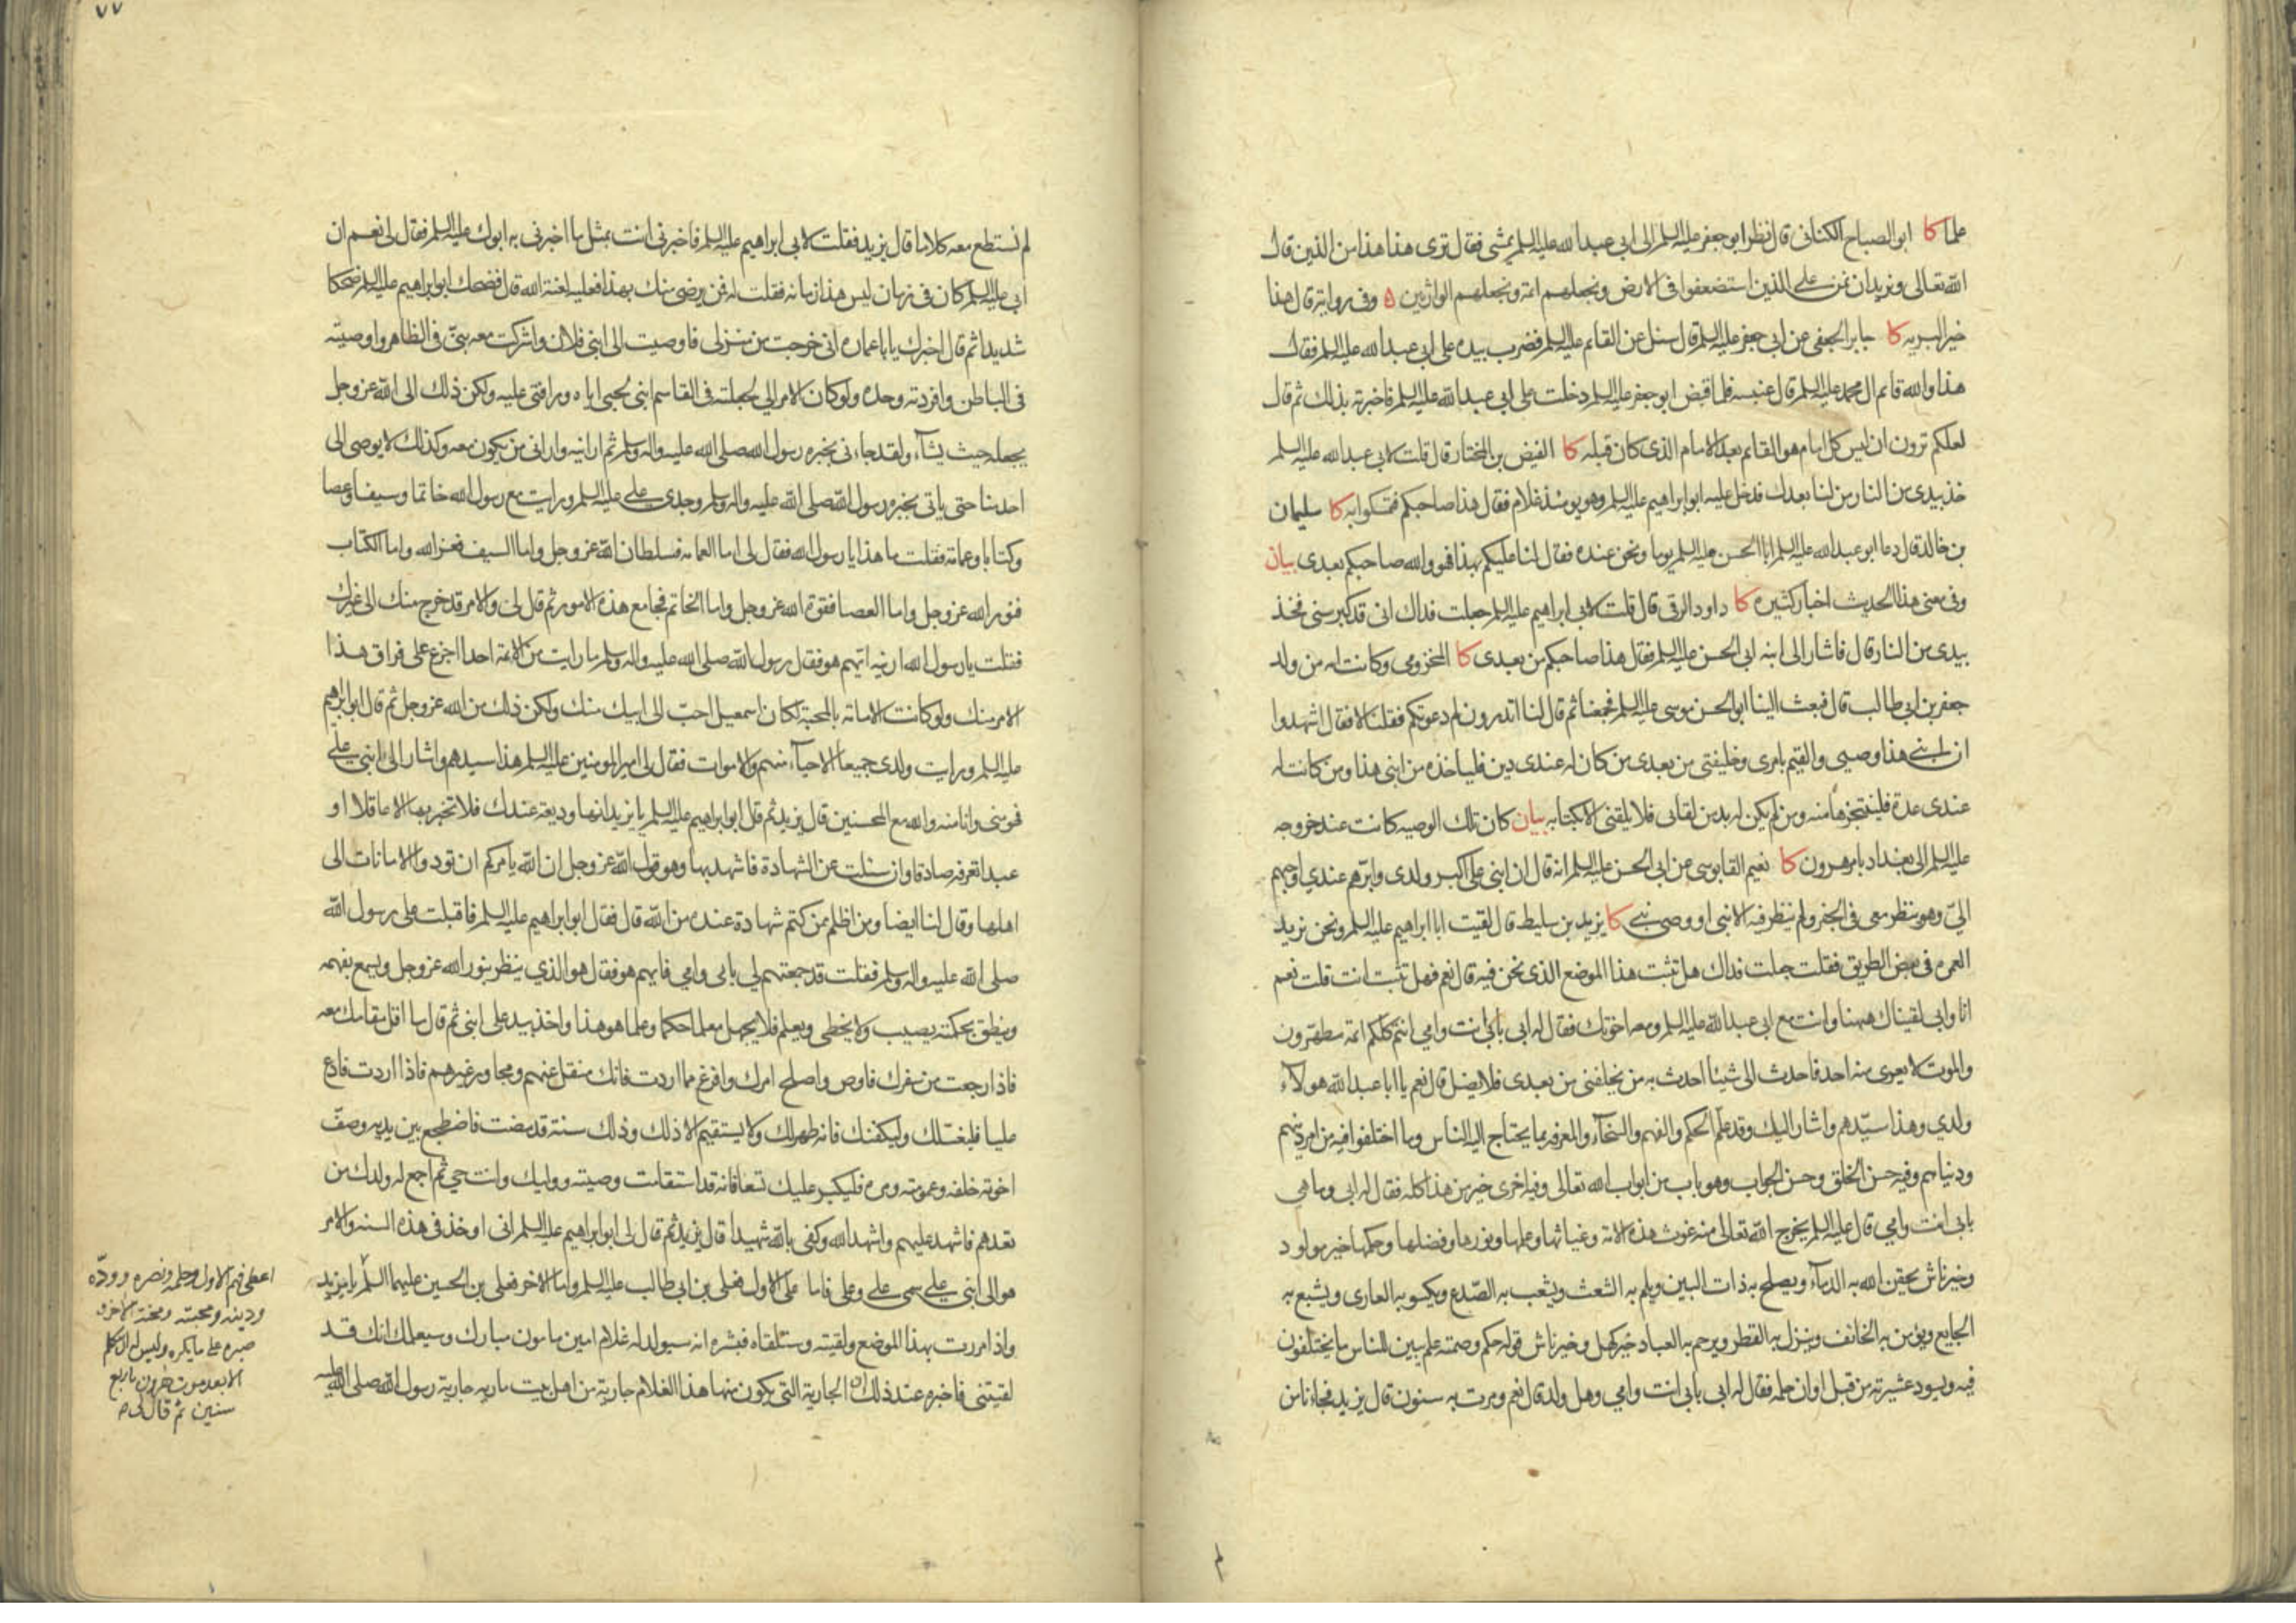 علما كا ابو الصباح الكنانى قال نظر ابو جعفر عليه السلم الى ابى عبد الله عليه السلم يمشى فقال ترى هذا هذا من الذين قال
الله تعالى ونريد ان نمن على الذين استضعفوا فى الارض ونجعلهم ائمة ونجعلهم الوارثين ه وفى رواية قال هذا
خير البريه كا جابر الجعفى عن ابى جعفر عليه السلم قال سئل عن القايم عليه السلم فضرب بيده على ابى عبد الله عليه السلم فقال
هذا والله قائم ال محمد عليه السلم قال عنبسه فلما قبض ابو جعفر عليه السلم دخلت على ابى عبد الله عليه السلم فاخبرته بذلك ثم قال
لعلكم ترون ان ليس كل امام هو القائم بعد الامام الذى كان قبله كا الفيض بن المختار قال قلت لابى عبد الله عليه السلم
خذ بيدى من النار من لنا بعدك فدخل عليه ابو ابراهيم عليه السلم وهو يومئذ غلام فقال هذا صاحبكم فتمسكوا به كا سليمان
بن خالد قال دعا ابو عبد الله عليه السلم ابا الحسن عليه السلم يوما ونحن عنده فقال لنا عليكم بهذا فهو والله صاحبكم بعدى بيان
وفى معنى هذا الحديث اخبار كثيره كا داود الرقى قال قلت لابى ابراهيم عليه السلم جعلت فداك انى قد كبر سنى فخذ
بيدى من النار قال فاشار الى ابنه ابى الحسن عليه السلم فقال هذا صاحبكم من بعدى كا المخزومى وكانت امه من ولد
جعفر بن ابى طالب قال فبعث الينا ابو الحسن موسى عليه السلم فجمعنا ثم قال لنا اتدرون لم دعوتكم فقلنا لا فقال اشهدوا
ان ابنى هذا وصيى والقيم بامرى وخليفتى من بعدى من كان له عندى دين فلياخذه من ابنى هذا ومن كانت له
عندى عدة فلينتجزها منه ومن لم يكن له بد من لقائى فلا يلقنى الا بكتابه بيان كان تلك الوصيه كانت عند خروجه
عليه السلم الى بغداد بامر هرون كا نعيم القابوسى عن ابى الحسن عليه السلم انه قال ان ابنى على اكبر ولدى وابرهم عندي واحبهم
الىّ وهو ينظر معى فى الجفر ولم ينظر فيه الا نبى او وصى نبى كا يزيد بن سليط قال لقيت ابا ابراهيم عليه السلم ونحن نريد
العمره فى بعض الطريق فقلت جعلت فداك هل تثبت هذا الموضع الذى نحن فيه قال نعم فهل تثبته انت قلت نعم
انا وابى لقيناك ههنا وانت مع ابى عبد الله عليه السلم ومعه اخوتك فقال له ابى بابى انت وامي انتم كلكم ائمة مطهرون
والموت لا يعرى منه احد فاحدث الى شيئا احدث به من يخلفنى من بعدى فلا يضل قال نعم يا ابا عبد الله هولاء
ولدي وهذا سيّدهم واشار اليك وقد علم الحكم والفهم والسخاء والمعرفه بما يحتاج اليه الناس وما اختلفوا فيه من امر دينهم
ودنياهم وفيه حسن الخلق وحسن الجواب وهو باب من ابواب الله تعالى وفيه اخرى خير من هذا كله فقال له ابى وما هى
بابى انت وامي قال عليه السلم يخرج الله تعالى منه غوث هذه الامة وغياثها وعلمها ونورها وفضلها وحكمها خير مولود
وخير ناش يحقن الله به الدماء ويصلح به ذات البين ويلم به الشعث ويشعب به الصّدع ويكسو به العارى ويشبع به
الجايع ويؤمن به الخائف وينزل به القطر ويرحم به العباد خير كهل وخير ناش قوله حكم وصمته علم يبين للناس ما يختلفون
فيه ويسود عشيرته من قبل اوان حلمه فقال له ابى بابى انت وامي وهل ولد قال نعم ومرت به سنون قال يزيد فجاءنا من
٧٧
لم نستطع معه كلاما قال يزيد فقلت لابى ابراهيم عليه السلم فاخبرنى انت بمثل ما اخبرنى به ابوك عليه السلم فقال لى نعم ان
ابى عليه السلم كان فى زمان ليس هذا زمانه فقلت له فمن يرضى منك بهذا فعليه لعنة الله قال فضحك ابو ابراهيم عليه السلم ضحكا
شديدا ثم قال اخبرك يا با عماره انى خرجت من منزلى فاوصيت الى ابنى فلان واشركت معه بنىّ فى الظاهر واوصيته
فى الباطن وافردته وحده ولو كان الامر الي لجعلته فى القاسم ابنى لحبى اياه ورافتى عليه ولكن ذلك الى الله عز وجل
يجعله حيث يشاء ولقد جاءنى بخبره رسول الله صلى الله عليه واله وسلم ثم ارانيه وارانى من يكون معه وكذلك لا يوصى الى
احد منا حتى ياتى بخبره رسول الله صلى الله عليه واله وسلم وجدى على عليه السلم ورايت مع رسول الله خاتما وسيفا وعصا
وكتابا وعمامة فقلت ما هذا يا رسول الله فقال لى اما العمامه فسلطان الله عز وجل واما السيف فعز الله واما الكتاب
فنور الله عز وجل واما العصا فقوة الله عز وجل واما الخاتم فجامع هذه الامور ثم قال لى والامر قد خرج منك الى غيرك
فقلت يا رسول الله ارنيه ايهم هو فقال رسول الله صلى الله عليه واله وسلم ما رايت من الائمة احدا اجزع على فراق هذا
الامر منك ولو كانت الامامة بالمحبة لكان اسمعيل احبّ الى ابيك منك ولكن ذلك من الله عز وجل ثم قال ابو ابراهيم
عليه السلم ورايت ولدى جميعا الاحياء منهم والاموات فقال لى امير المومنين عليه السلم هذا سيدهم واشار الى ابنى على
فهو منى وانا منه والله مع المحسنين قال يزيد ثم قال ابو ابراهيم عليه السلم يا يزيد انها وديعة عندك فلا تخبر بها الا عاقلا او
عبدا تعرفه صادقا وان سئلت عن الشهادة فاشهد بها وهو قول الله عز وجل ان الله يامركم ان تودوا الامانات الى
اهلها وقال لنا ايضا ومن اظلم ممن كتم شهادة عنده من الله قال فقال ابو ابراهيم عليه السلم فاقبلت على رسول الله
صلى الله عليه واله وسلم فقلت قد جمعتهم لي بابى وامي فايهم هو فقال هو الذي ينظر بنور الله عز وجل ويسمع بفهمه
وينطق بحكمته يصيب ولا يخطى ويعلم فلا يجهل معلما حكما وعلما هو هذا واخذ بيد على ابنى ثم قال ما اقل مقامك معه
فاذا رجعت من سفرك فاوص واصلح امرك وافرغ مما اردت فانك منتقل عنهم ومجاور غيرهم فاذا اردت فادع
عليا فليغسّلك وليكفنك فانه طهر لك ولا يستقيم الا ذلك وذلك سنة قد مضت فاضطجع بين يديه وصفّ
اخوته خلفه وعمومته ومره فليكبر عليك تسعا فانه قد استقامت وصيته ووليك وانت حي ثم اجمع له ولدك من
تعدهم فاشهد عليهم واشهد الله وكفى بالله شهيدا قال يزيد ثم قال لى ابو ابراهيم عليه السلم انى اوخذ فى هذه السنه والامر
هو الى ابنى على سمى على وعلى فاما على الاول فعلى بن ابى طالب عليه السلم واما الاخر فعلى بن الحسين عليهما السلم يا يزيد
واذا مررت بهذا الموضع ولقيته وستلقاه فبشره انه سيولد له غلام امين مامون مبارك وسيعلمك انك قد
لقيتنى فاخبره عند ذلك ان الجارية التى يكون منها هذا الغلام جارية من اهل بيت ماريه جارية رسول الله صلى الله عليه
اعطى فهم الاول وحلمه ونصره وودّه
ودينه ومحنته ومحنة الاخر و
صبره على ما يكره وليس له ان يتكلم
الا بعد موت هرون باربع
سنين ثم قال لى